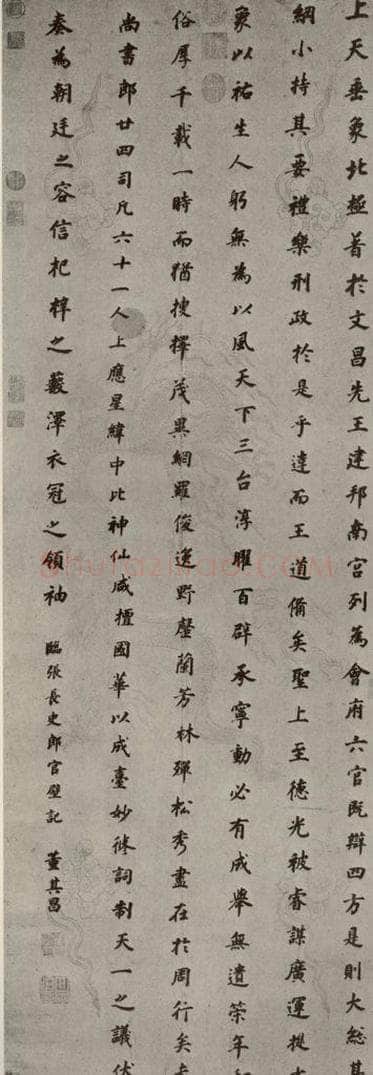 上天垂象北極著於文昌先王建邦南宮列為會府六官既辯四方是則大總其
綱小持其要禮樂刑政於是乎達而王道備矣聖上至德光被睿謀廣運提
象以祐生人躬無為以風天下三台淳曜百辟承寧動必有成舉無遺策年
俗厚千載一時而猶搜擇茂異網羅俊逸野罄蘭芳林殫松秀盡在於周行矣
尚書郎廿四司凡六十一人上應星緯中比神仙咸擅國華以成臺妙修詞制天一之議伏
奏為朝廷之容信杞梓之藪澤衣冠之領袖
臨張長史郎官壁記 董其昌